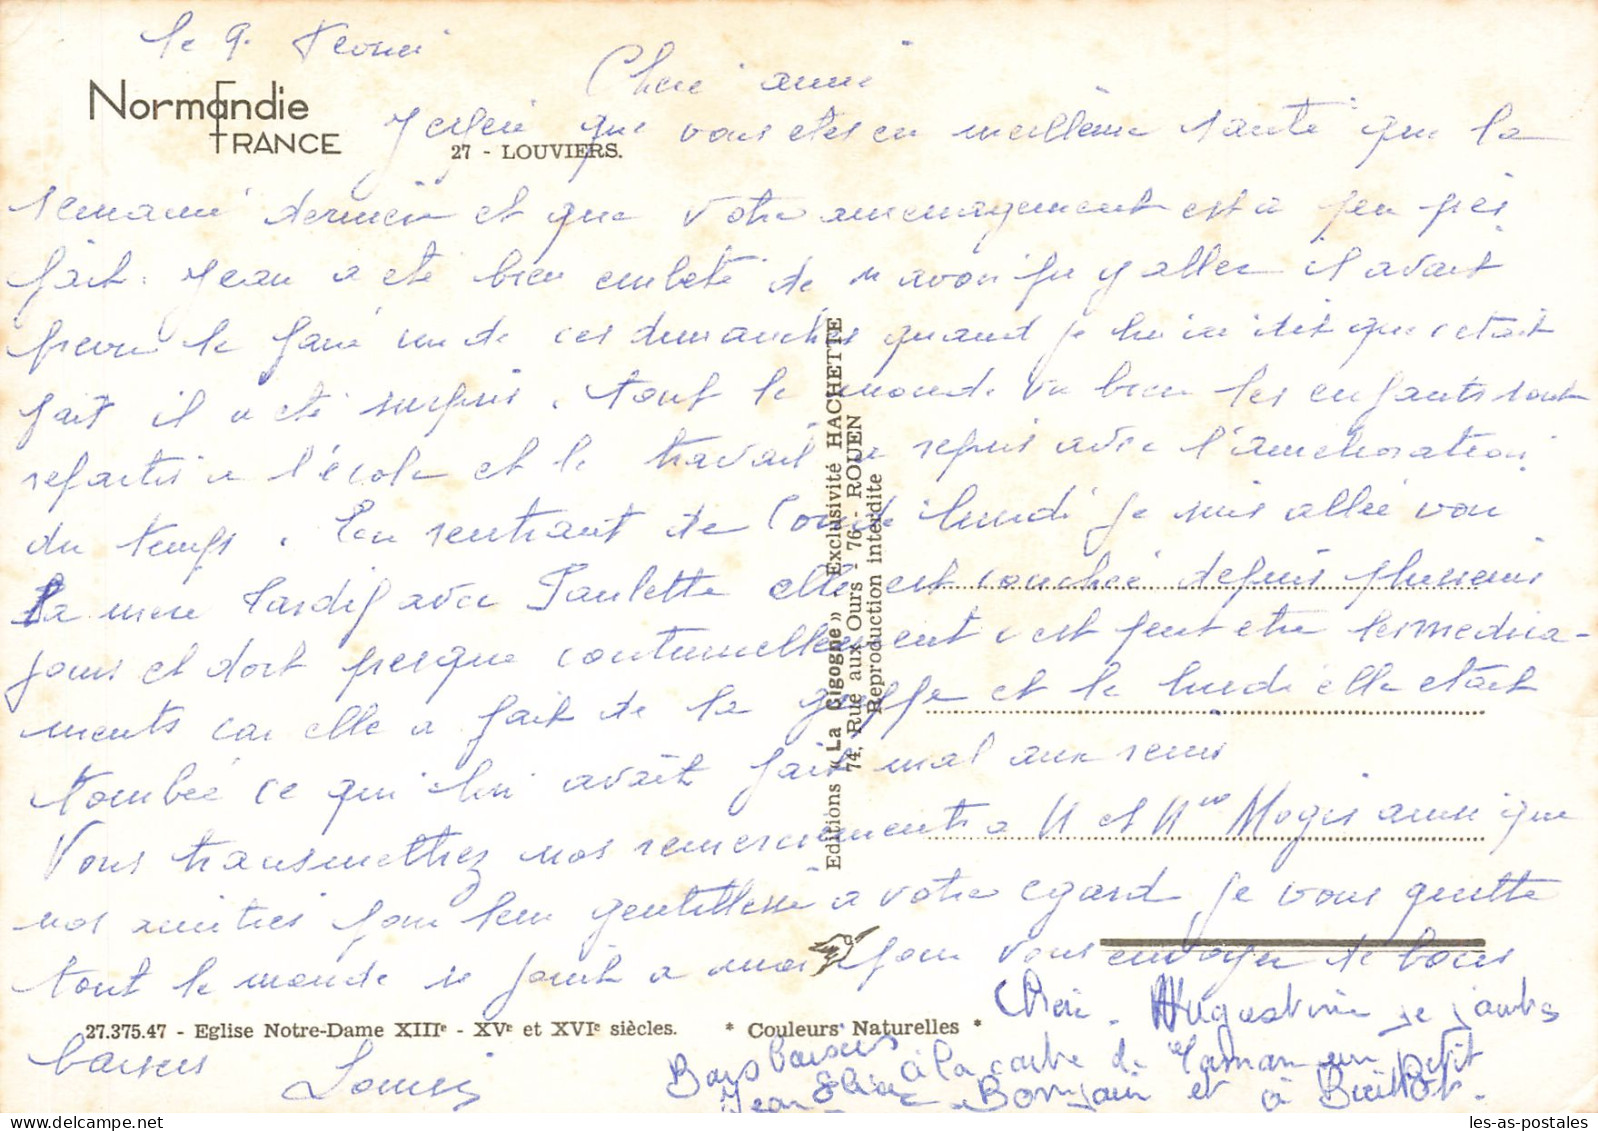 le 9. Fevrier
Cherie amie
Normandie
FRANCE
J espere que vous etes en meilleure santé que la
27 - LOUVIERS.
semaine derniere et que votre amenagement est a peu près
fait. Jean a eté bien embeté de n avoir pu y aller il avait
prevu le faire un de ces dimanches quand je lui ai dit que c etait
fait il a eté surpris. tout le monde va bien les enfants sont
repartis a l'école et le travail a repris avec l'amelioration
du temps. En rentrant de Condé lundi je suis allée voir
La mere Tardif avec Paulette elle est couchée depuis plusieurs
jours et dort presque continuellement c est peut etre les medica-
ments car elle a fait de la grippe et le lundi elle etait
tombée ce qui lui avait fait mal aux reins
Vous transmettrez nos remerciements a M et Mme Moges ainsi que
nos amitiés pour leur gentillesse a votre egard je vous quitte
tout le monde se joint a moi pour vous envoyer de bons
baisers Louise
Editions « La Cigogne » Exclusivité HACHETTE
74, Rue aux Ours - 76 - ROUEN
Reproduction interdite
27.375.47 - Eglise Notre-Dame XIIIe - XVe et XVIe siècles. * Couleurs Naturelles *
Cher Augustine je joins
à la carte de Maman un petit
Bonjour et à Bientôt.
Bons baisers
Jean